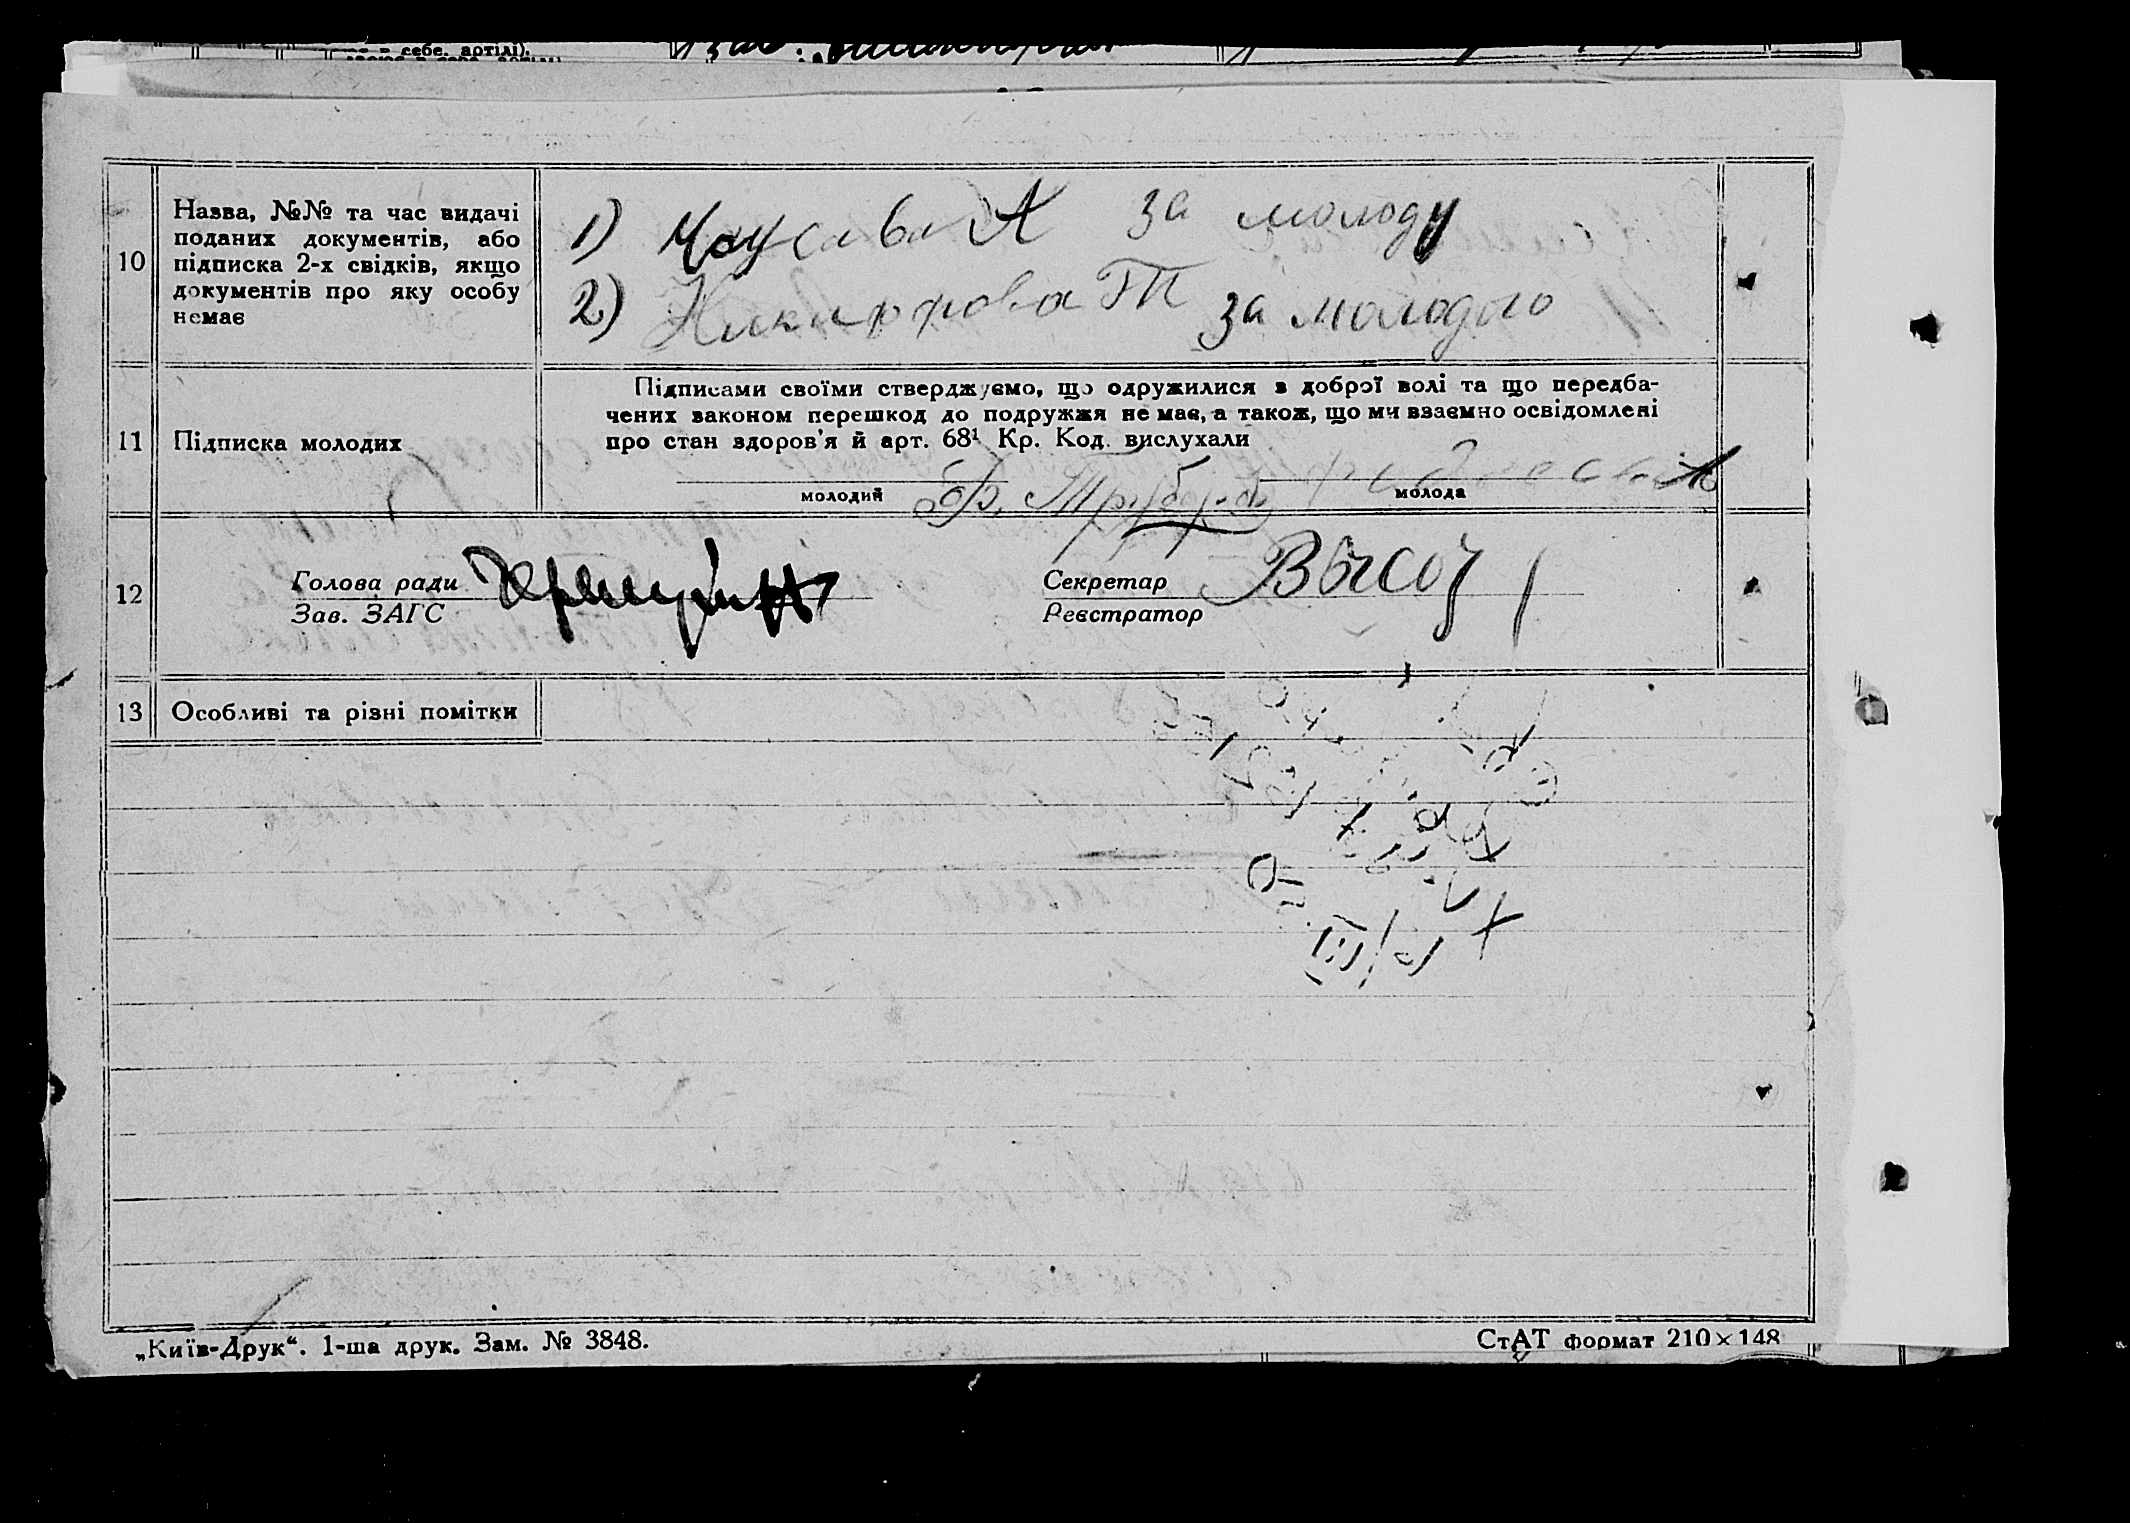 себе. артілі).
10
Назва, №№ та час видачі
поданих документів, або
підписка 2-х свідків, якщо
документів про яку особу
немає
1) за молоду
2) Никифорова Т за молодого
11
Підписка молодих
Підписами своїми стверджуємо, що одружилися в доброї волі та що передба-
чених законом перешкод до подружжя не має, а також, що ми взаємно освідомлені
про стан здоров'я й арт. 68¹ Кр. Код. вислухали
молодий
молода
12
Голова ради
Зав. ЗАГС
Секретар
Реєстратор
13
Особливі та різні помітки
„Київ-Друк“. 1-ша друк. Зам. № 3848.
СтАТ формат 210×148